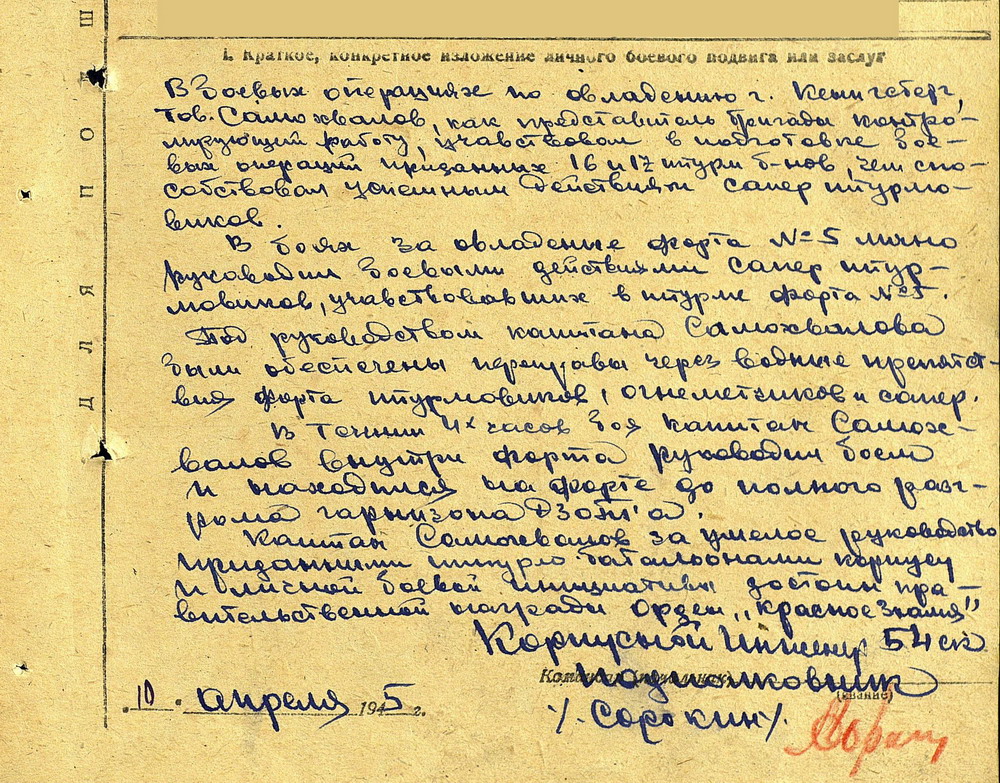 ДЛЯ ПОДШ
I. Краткое, конкретное изложение личного боевого подвига или заслуг
В боевых операциях по овладению г. Кенигсберг,
тов. Самохвалов, как представитель бригады контро-
лирующий работу, учавствовал в подготовке бое-
вых операций приданных 16 и 17 штурм б-нов, чем спо-
собствовал успешным действиям сапер штурмо-
виков.
В боях за овладение форта № 5 лично
руководил боевыми действиями сапер штур-
мовиков, учавствовавших в штурме форта № 5.
Под руководством капитана Самохвалова
были обеспечены переправы через водные препятст-
вия форта штурмовиков, огнеметчиков и сапер.
В течении 4х часов боя капитан Самох-
валов внутри форта руководил боем
и находился на форте до полного разг-
рома гарнизона ДЗОТ'а.
Капитан Самохвалов за умелое руководство
приданными штурмо батальонами корпусу
и личной боевой инициативы достоин пра-
вительственной награды Орден „Красное Знамя"
Корпусной Инженер 54 ск
Подполковник
(звание)
/. Сорокин /.
„10" апреля 1945 г.